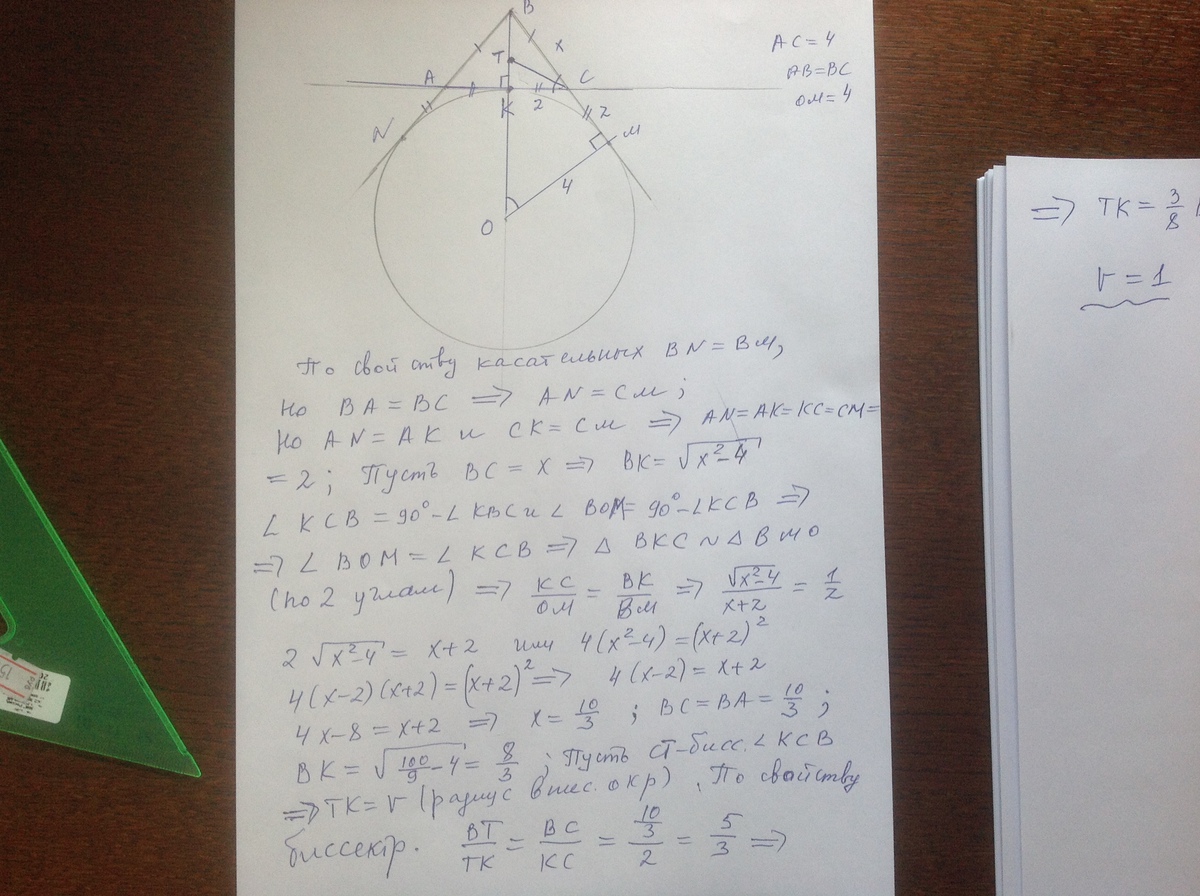 B
T
x
A
C
K
2
2
N
M
4
O
AC = 4
AB = BC
OM = 4
По свойству касательных BN = BM,
но BA = BC ⇒ AN = CM;
но AN = AK и CK = CM ⇒ AN = AK = KC = CM =
= 2; Пусть BC = x ⇒ BK = √(x² - 4)
∠ KCB = 90° - ∠ KBC и ∠ BOM = 90° - ∠ KCB ⇒
⇒ ∠ BOM = ∠ KCB ⇒ △ BKC ~ △ BMO
(по 2 углам) ⇒ KC/OM = BK/BM ⇒ √(x² - 4)/(x + 2) = 1/2
2 √(x² - 4) = x + 2 или 4(x² - 4) = (x + 2)²
4(x - 2)(x + 2) = (x + 2)² ⇒ 4(x - 2) = x + 2
4x - 8 = x + 2 ⇒ x = 10/3 ; BC = BA = 10/3 ;
BK = √(100/9 - 4) = 8/3 ; Пусть CT - бисс. ∠ KCB
⇒ TK = r (радиус впис. окр). По свойству
биссектр. BT/TK = BC/KC = (10/3)/2 = 5/3 ⇒
⇒ TK = 3/8
r = 1